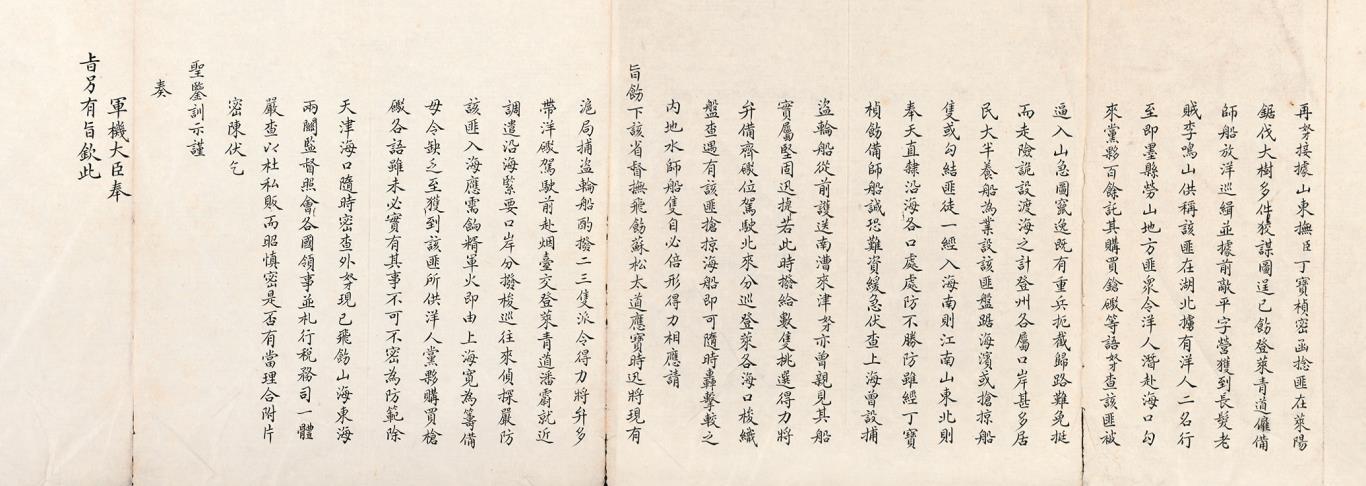 再孥接據山東撫臣丁寶楨密函捻匪在萊陽
鋸伐大樹多件狡謀圖逞已飭登萊青道僱備
師船放洋巡緝並據前敵平字營獲到長髮老
賊李鳴山供稱該匪在湖北擄有洋人二名行
至即墨縣勞山地方匪眾令洋人潛赴海口勾
來黨夥百餘託其購買鎗礮等語孥查該匪被
逼入山急圖竄逸既有重兵扼截歸路難免挺
而走險詭設渡海之計登州各屬口岸甚多居
民大半養船為業設該匪盤踞海濱或搶掠船
隻或勾結匪徒一經入海南則江南山東北則
奉天直隸沿海各口處處防不勝防雖經丁寶
楨飭備師船誠恐難資緩急伏查上海曾設捕
盜輪船從前護送南漕來津孥亦曾親見其船
實屬堅固迅捷若此時撥給數隻挑選得力將
弁備齊礮位駕駛北來分巡登萊各海口梭織
盤查遇有該匪搶掠海船即可隨時轟擊較之
內地水師船隻自必倍形得力相應請
旨飭下該省督撫飛飭蘇松太道應寶時迅將現有
滬局捕盜輪船酌撥二三隻派令得力將弁多
帶洋礮駕駛前赴烟臺交登萊青道潘霨就近
調遣沿海緊要口岸分撥梭巡往來偵探嚴防
該匪入海應需餉糈軍火即由上海寬為籌備
毋令缺乏至獲到該匪所供洋人黨夥購買槍
礮各語雖未必實有其事不可不密為防範除
天津海口隨時密查外孥現已飛飭山海東海
兩關監督照會各國領事並札行稅務司一體
嚴查以杜私販而昭慎密是否有當理合附片
密陳伏乞
聖鑒訓示謹
奏
軍機大臣奉
旨另有旨欽此